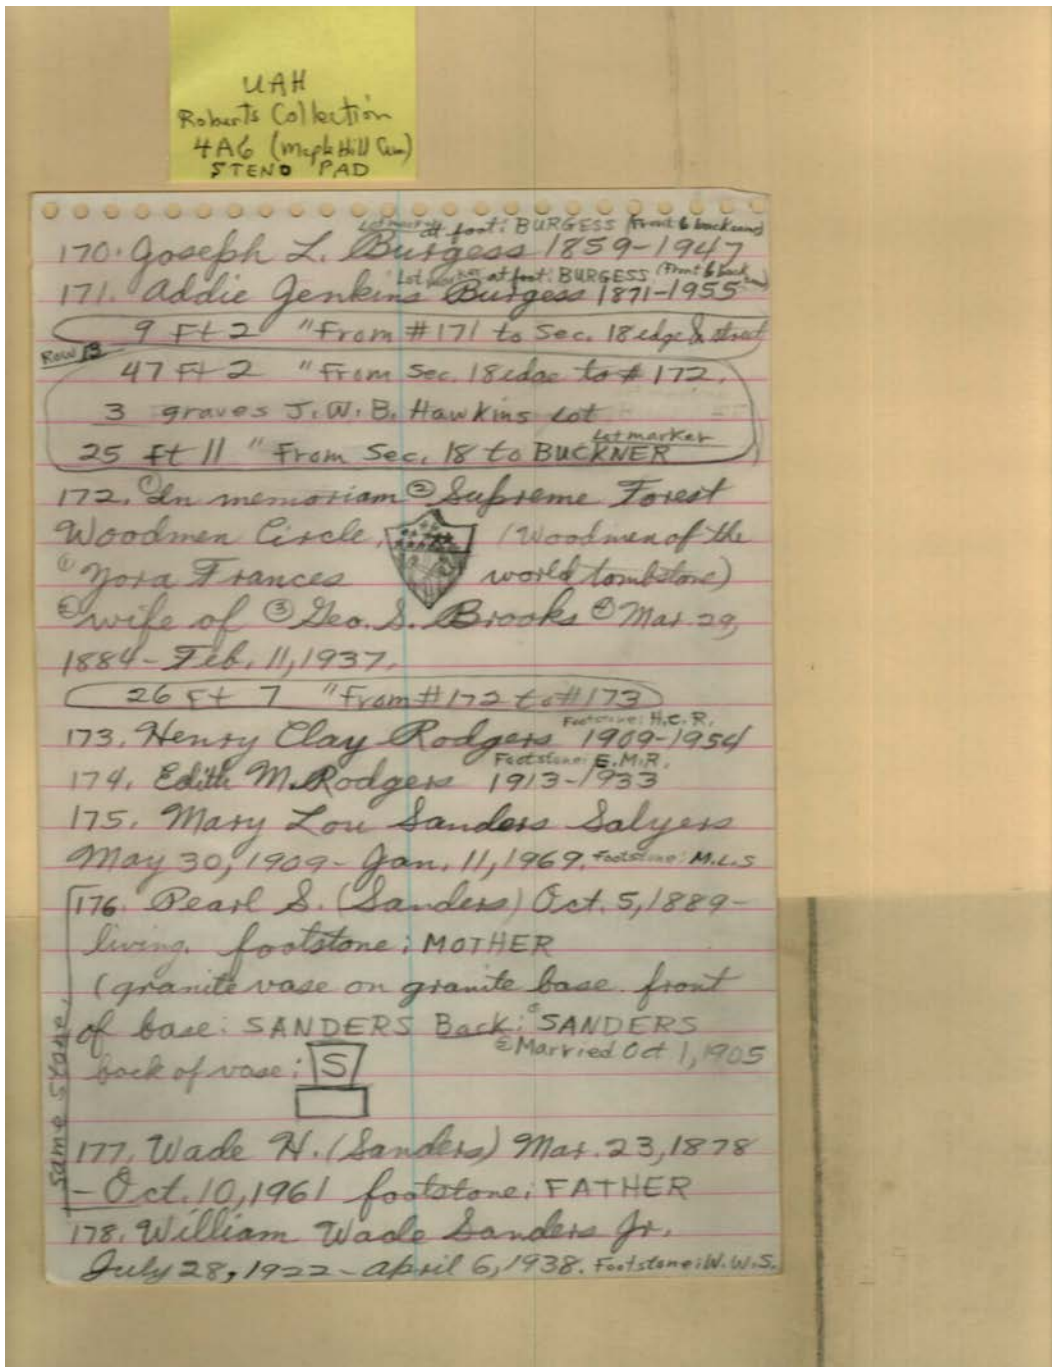 UAH
Roberts Collection
4A6 (Maple Hill Cem)
STENO PAD
Lot marker at foot: BURGESS (Front & back same)
170. Joseph L. Burgess 1859-1947
Lot marker at foot: BURGESS (Front & back same)
171. Addie Jenkins Burgess 1871-1955
9 Ft 2 "From #171 to Sec. 18 edge & street
Row 13
47 Ft 2 "From Sec. 18 edge to #172.
3 graves J. W. B. Hawkins Lot
Lot marker
25 ft 11 "From Sec. 18 to BUCKNER
172. ①In memoriam ②Supreme Forest
Woodmen Circle, (Woodmen of the
①Nora Frances world tombstone)
②wife of ③Geo. S. Brooks ④Mar. 29,
1884-Feb. 11, 1937.
26 Ft 7 "From #172 to #173
Footstone: H.C.R.
173. Henry Clay Rodgers 1909-1954
Footstone: E.M.R.
174. Edith M. Rodgers 1913-1933
175. Mary Lou Sanders Salyers
May 30, 1909-Jan. 11, 1969. Footstone: M.L.S
176. Pearl S. (Sanders) Oct. 5, 1889-
living. footstone: MOTHER
(granite vase on granite base. front
of base: SANDERS Back: ①SANDERS
②Married Oct 1, 1905
back of vase: S
same stone
177. Wade H. (Sanders) Mar. 23, 1878
- Oct. 10, 1961 footstone: FATHER
178. William Wade Sanders Jr.
July 28, 1922-April 6, 1938. Footstone: W.W.S.